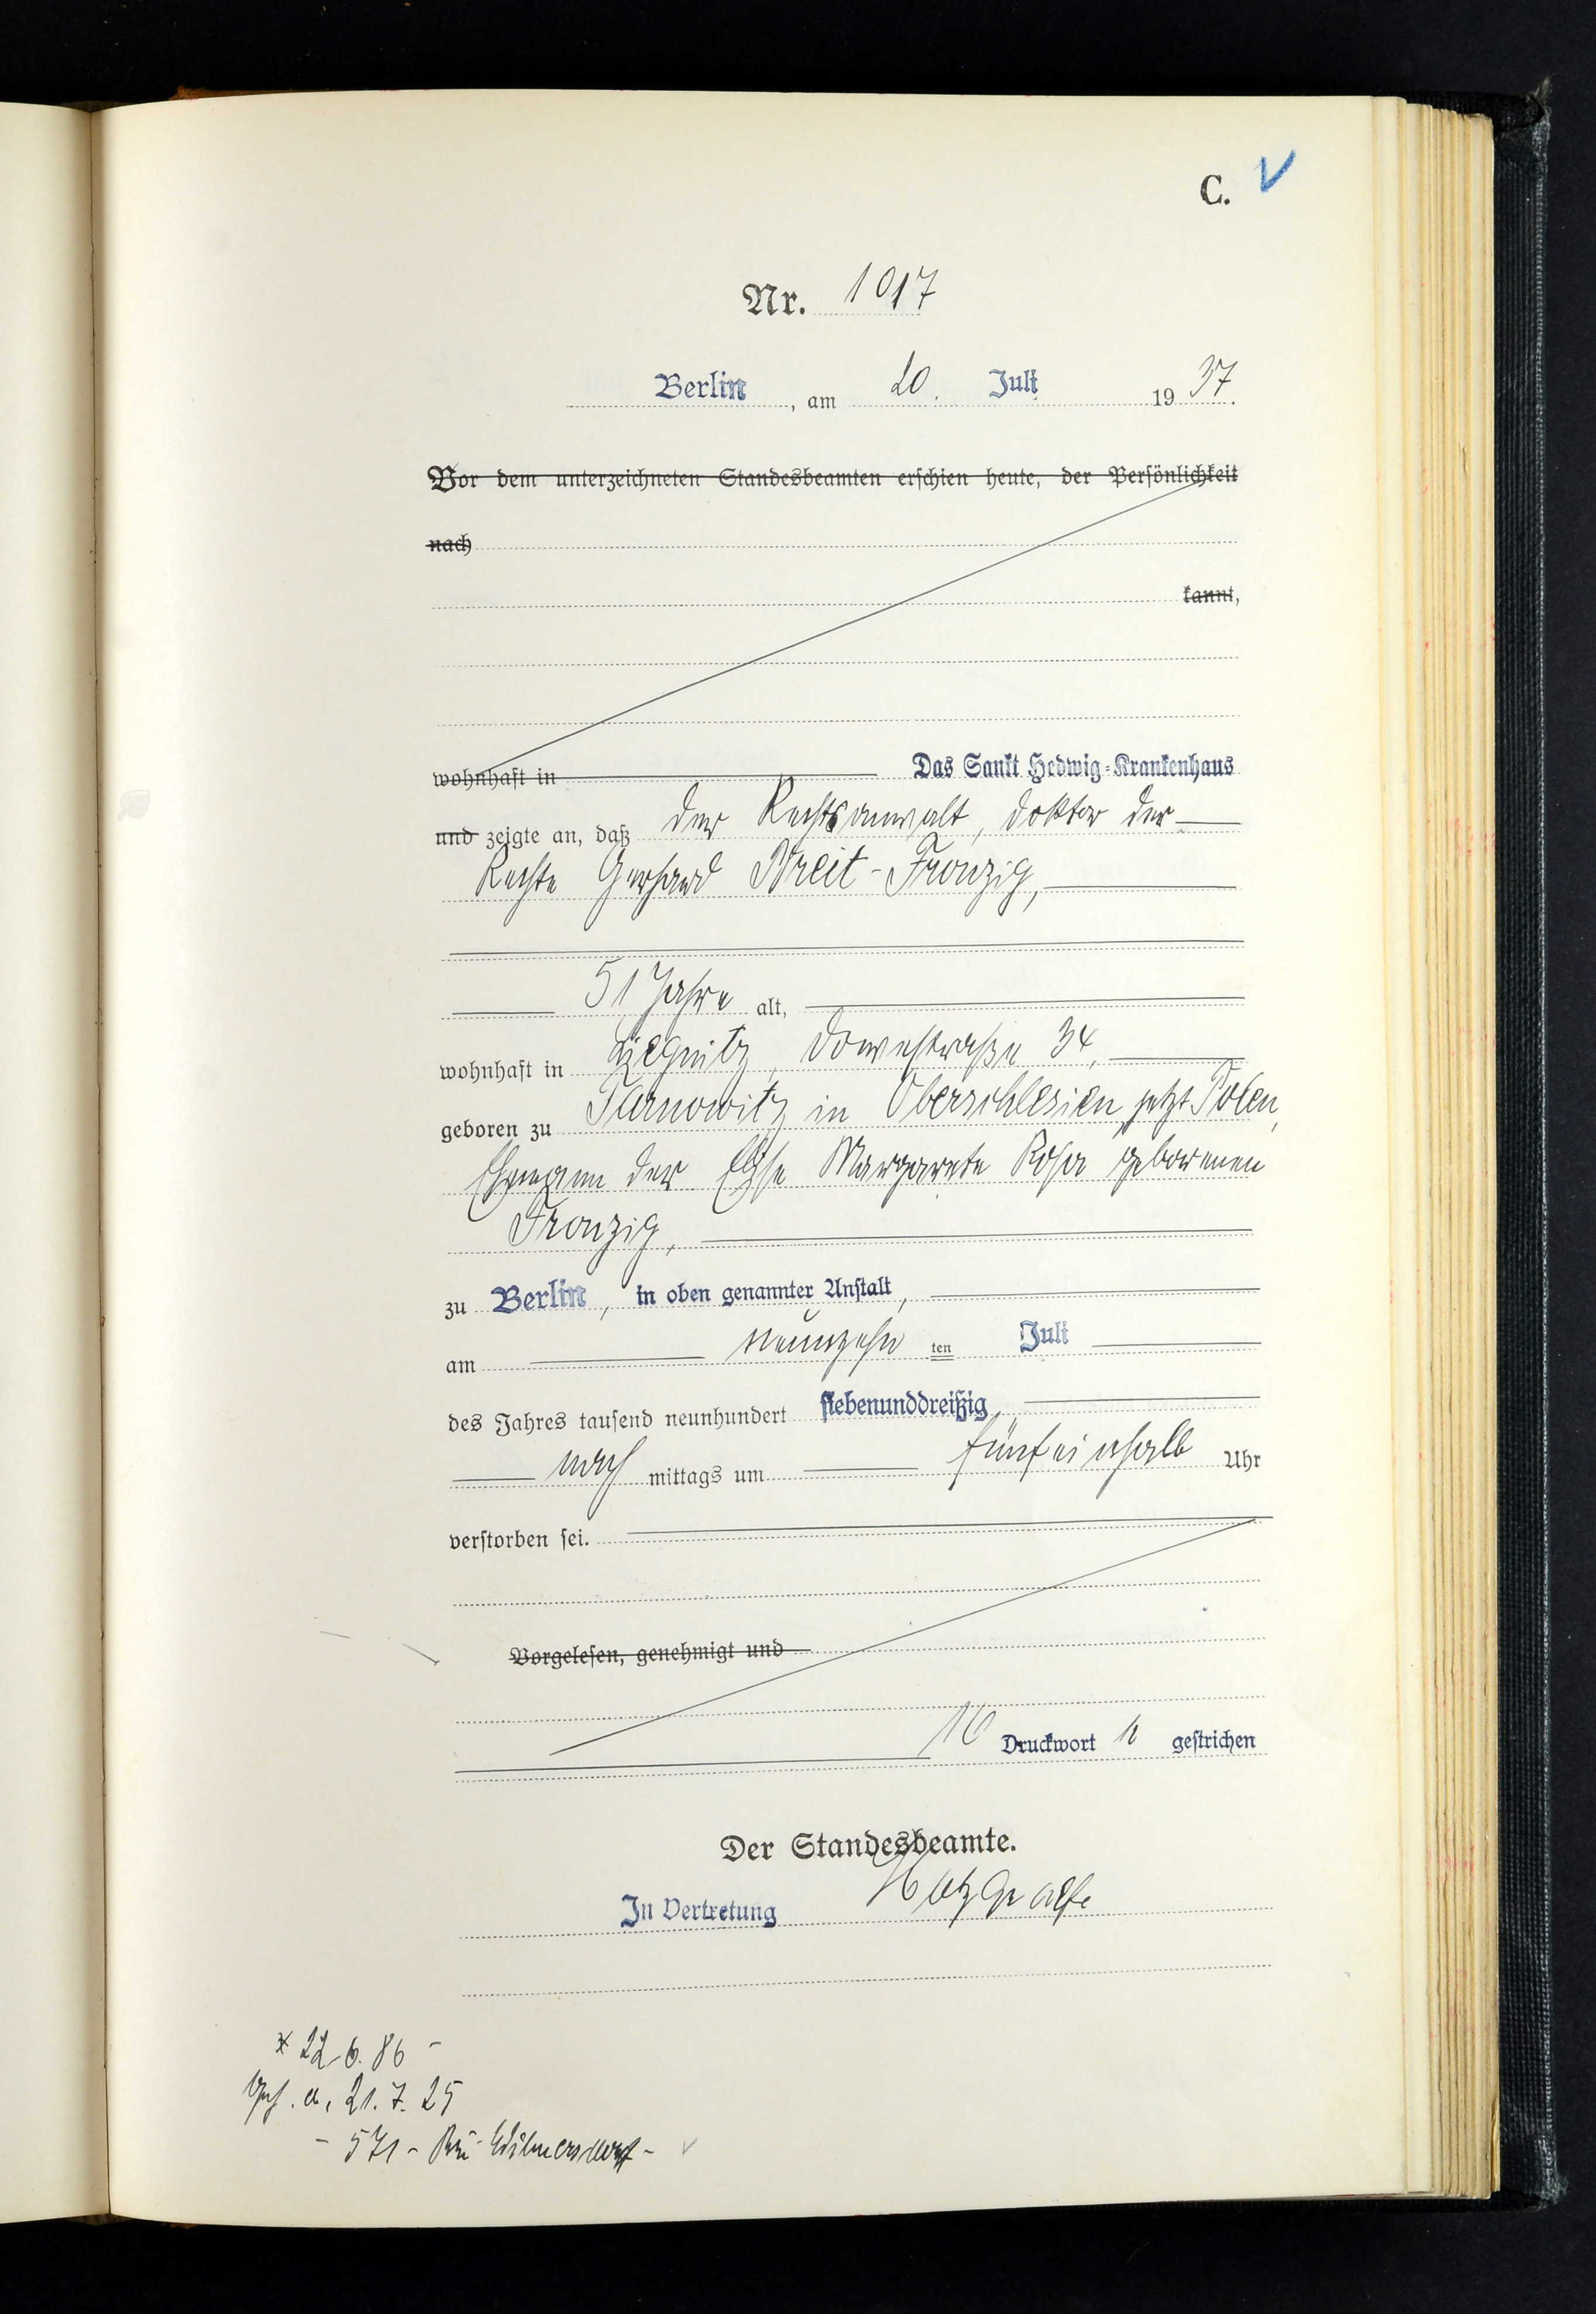 C.
Nr. 1017
Berlin, am 20. Juli 1937.
Vor dem unterzeichneten Standesbeamten erschien heute, der Persönlichkeit
nach
kannt,
wohnhaft in Das Sankt Hedwig-Krankenhaus
und zeigte an, daß der Rechtsanwalt, Doktor der
Rechte Gerhard Breit-Fronzig,
51 Jahre alt,
wohnhaft in Liegnitz, Dovestraße 34,
geboren zu Tarnowitz in Oberschlesien, jetzt Polen,
Ehemann der Else Margarete Rosa geborenen
Fronzig,
zu Berlin, in oben genannter Anstalt,
am neunzehn ten Juli
des Jahres tausend neunhundert siebenunddreißig,
nach mittags um fünfeinhalb Uhr
verstorben sei.
Vorgelesen, genehmigt und
16 Druckwort gestrichen
Der Standesbeamte.
In Vertretung
* 22.6.86 -
21.7.25
- 571 - Wilmersdorf -